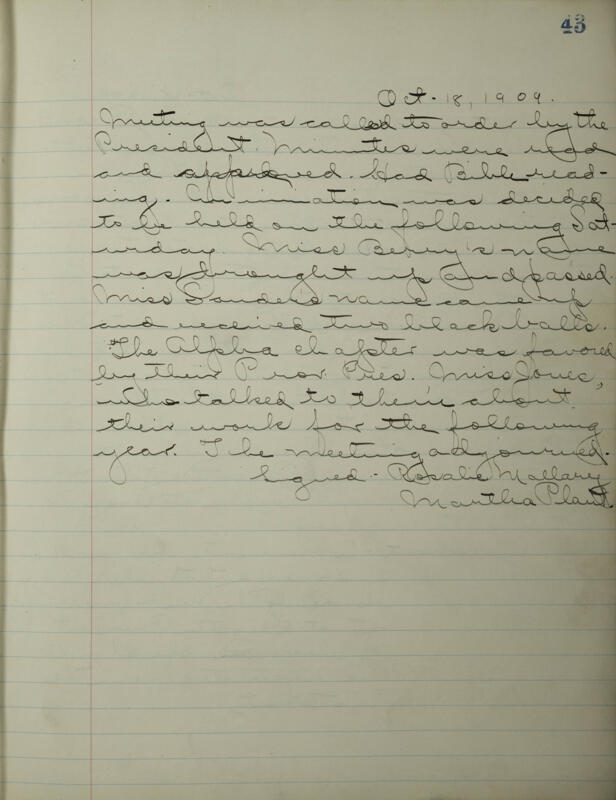 43
Oct. 18, 1909.
Meeting was called to order by the
President. Minutes were read
and approved. Had Bible read-
ing. An innation was decided
to be held on the following Sat-
urday. Miss Berry's name
was brought up and passed.
Miss Sander's name came up
and received two black balls.
The Alpha chapter was favored
by their Prov. Pres. Miss Jones,
who talked to them about
their work for the following
year. The meeting adjourned.
Signed - Rosalie Mallary
Martha Plant